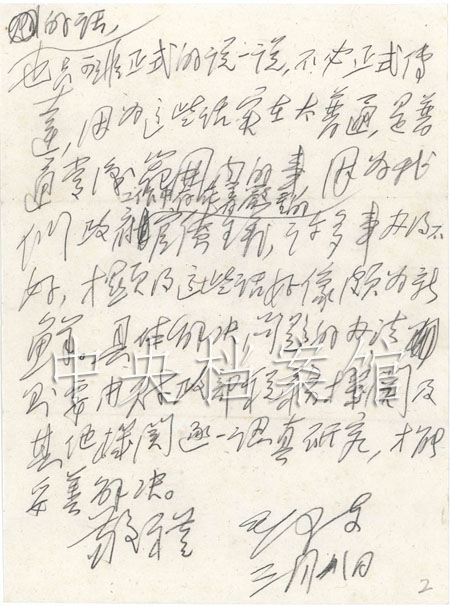 的话，
也只须非正式的说一说，不必正式传
达，因为这些话实在太普通，是普
通常识范围内的事，因为我
工作中存在着严重的
们政府官僚主义，许多事办得不
好，才显得这些话好像颇为新
鲜。具体解决问题的办法
则要由
其他机关逐一认真研究，才能
妥善解决。
敬礼
毛泽东
三月八日
中央档案馆
2